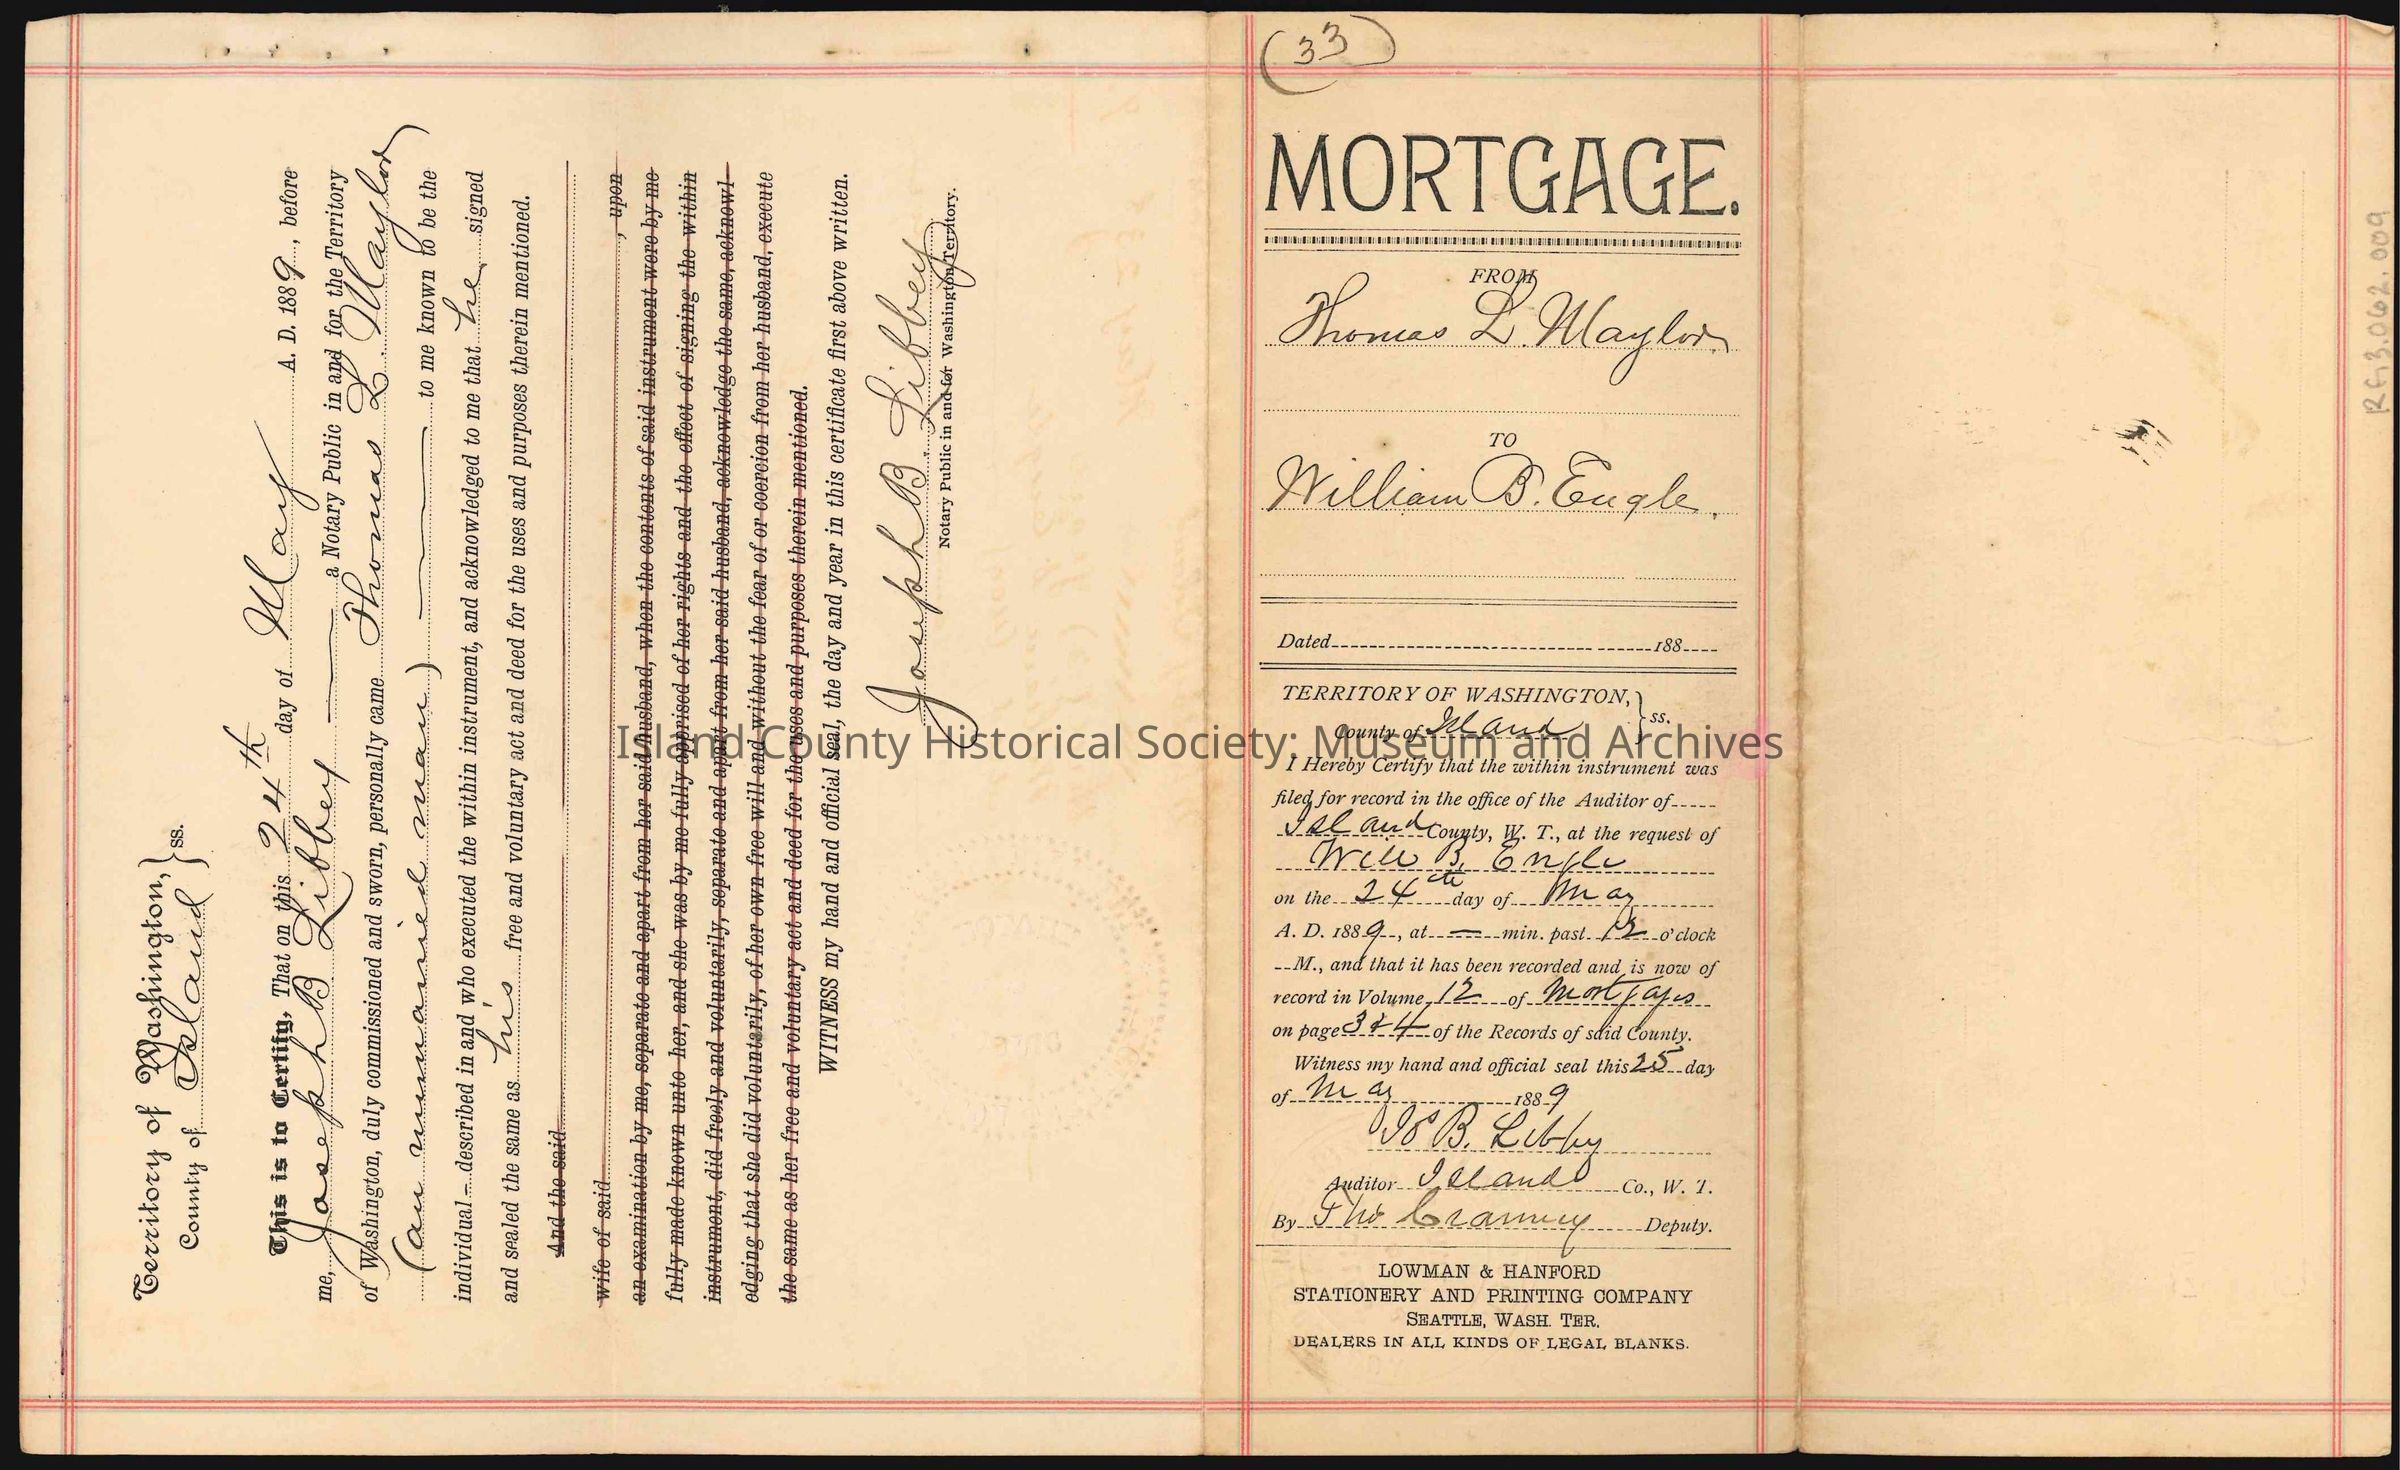 Territory of Washington, } ss.
County of Island
This is to Certify, That on this 24th day of May A. D. 1889, before
me, Joseph B Libbey a Notary Public in and for the Territory
of Washington, duly commissioned and sworn, personally came Thomas L. Maylor
(an unmarried man) to me known to be the
individual described in and who executed the within instrument, and acknowledged to me that he signed
and sealed the same as his free and voluntary act and deed for the uses and purposes therein mentioned.
And the said
wife of said , upon
an examination by me, separate and apart from her said husband, when the contents of said instrument were by me
fully made known unto her, and she was by me fully apprised of her rights and the effect of signing the within
instrument, did freely and voluntarily, separate and apart from her said husband, acknowledge the same, acknowl-
edging that she did voluntarily, of her own free will and without the fear of or coercion from her husband, execute
the same as her free and voluntary act and deed for the uses and purposes therein mentioned.
WITNESS my hand and official seal, the day and year in this certificate first above written.
Joseph B. Libbey
Notary Public in and for Washington Territory.
(33)
MORTGAGE.
FROM
Thomas L. Maylor
TO
William B. Engle.
Dated 188
TERRITORY OF WASHINGTON, } ss.
County of Island
I Hereby Certify that the within instrument was
filed for record in the office of the Auditor of
Island County, W. T., at the request of
Will B. Engle
on the 24th day of May
A. D. 1889, at — min. past 12 o'clock
M., and that it has been recorded and is now of
record in Volume 12 of Mortgages
on page 3 & 4 of the Records of said County.
Witness my hand and official seal this 25 day
of May 1889
B. Libby
Auditor Island Co., W. T.
By Tho Cranney Deputy.
LOWMAN & HANFORD
STATIONERY AND PRINTING COMPANY
SEATTLE, WASH. TER.
DEALERS IN ALL KINDS OF LEGAL BLANKS.
RG3.062.009
Island County Historical Society; Museum and Archives